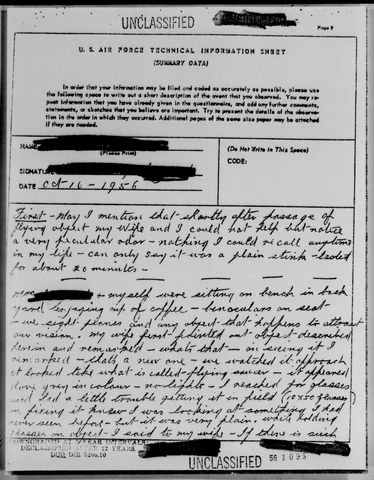 UNCLASSIFIED
Page 9
U. S. AIR FORCE TECHNICAL INFORMATION SHEET
(SUMMARY DATA)
In order that your information may be filed and coded as accurately as possible, please use
the following space to write out a short description of the event that you observed. You may re-
peat information that you have already given in the questionnaire, and add any further comments,
statements, or sketches that you believe are important. Try to present the details of the observa-
tion in the order in which they occurred. Additional pages of the same size paper may be attached
if they are needed.
NAME
(Please Print)
SIGNATURE
DATE Oct 16 - 1956
(Do Not Write in This Space)
CODE:
First - May I mention that shortly after passage of
flying object my wife and I could not help but notice
a very peculular odor - nothing I could recall anytime
in my life - can only say it was a plain stink - lasted
for about 20 minutes -
Mrs + my self were sitting on bench in back
yard cup of coffee - benoculars on seat
- we sight planes and any object that happens to attract
our vision. My wife first object discribed
herein and remarked - whats that - on seeing it I
remarked - thats a new one - we watched it approach
it looked like what is called - flying saucer - it appeared
dove grey in colour - no lights - I reached for glasses
and had a little trouble getting it in field (10x50 glasses)
in fixing it knew I was looking at something I had
never seen before - but it was very plain - while holding
glasses on object I said to my wife - If there is such
DOWNGRADED AT 3 YEAR INTERVALS
DECLASSIFIED AFTER 12 YEARS.
DOD DIR 5200.10
UNCLASSIFIED